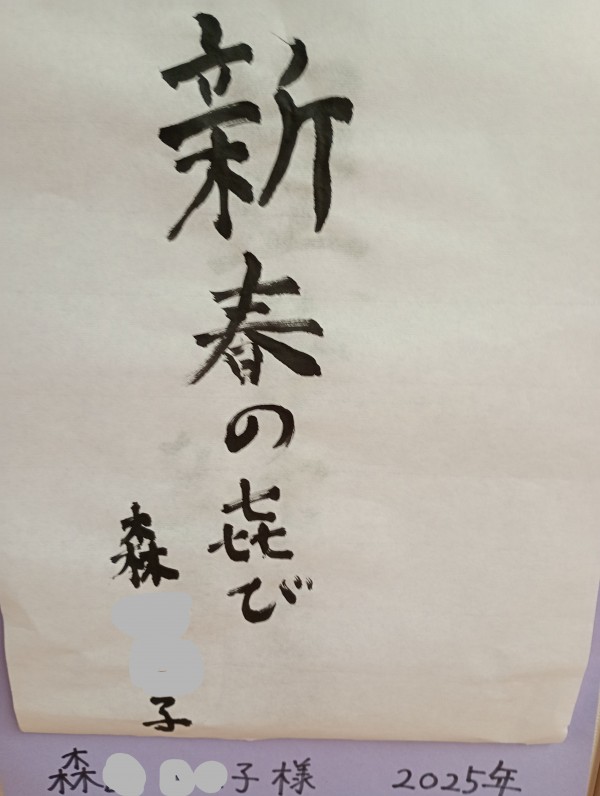 新春の㐂び
森 子
森 子様 2025年